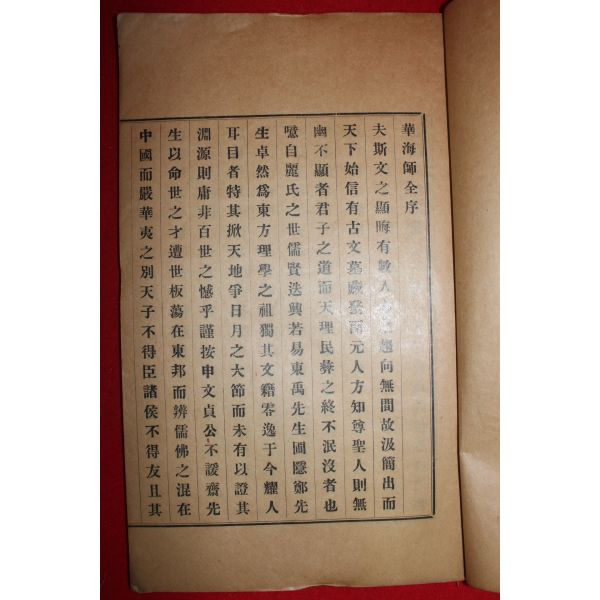 華海師全序
夫斯文之顯晦有數人心之趨向無間故汲簡出而
天下始信有古文墓誌發而元人方知尊聖人則無
幽不顯者君子之道而天理民彝之終不泯沒者也
噫自麗氏之世儒賢迭興若易東禹先生圃隱鄭先
生卓然爲東方理學之祖獨其文籍零逸于今耀人
耳目者特其掀天地爭日月之大節而未有以證其
淵源則庸非百世之憾乎謹按申文貞公不諼齋先
生以命世之才遭世板蕩在東邦而辨儒佛之混在
中國而嚴華夷之別天子不得臣諸侯不得友且其